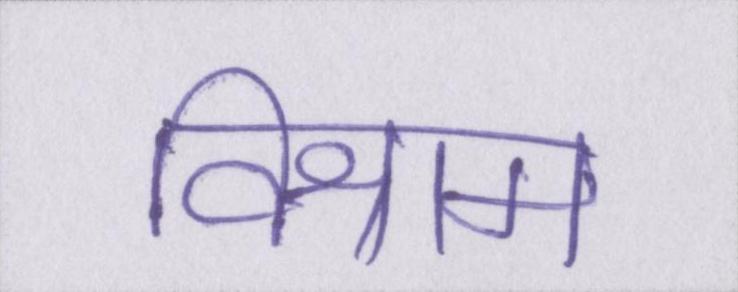 विश्राम